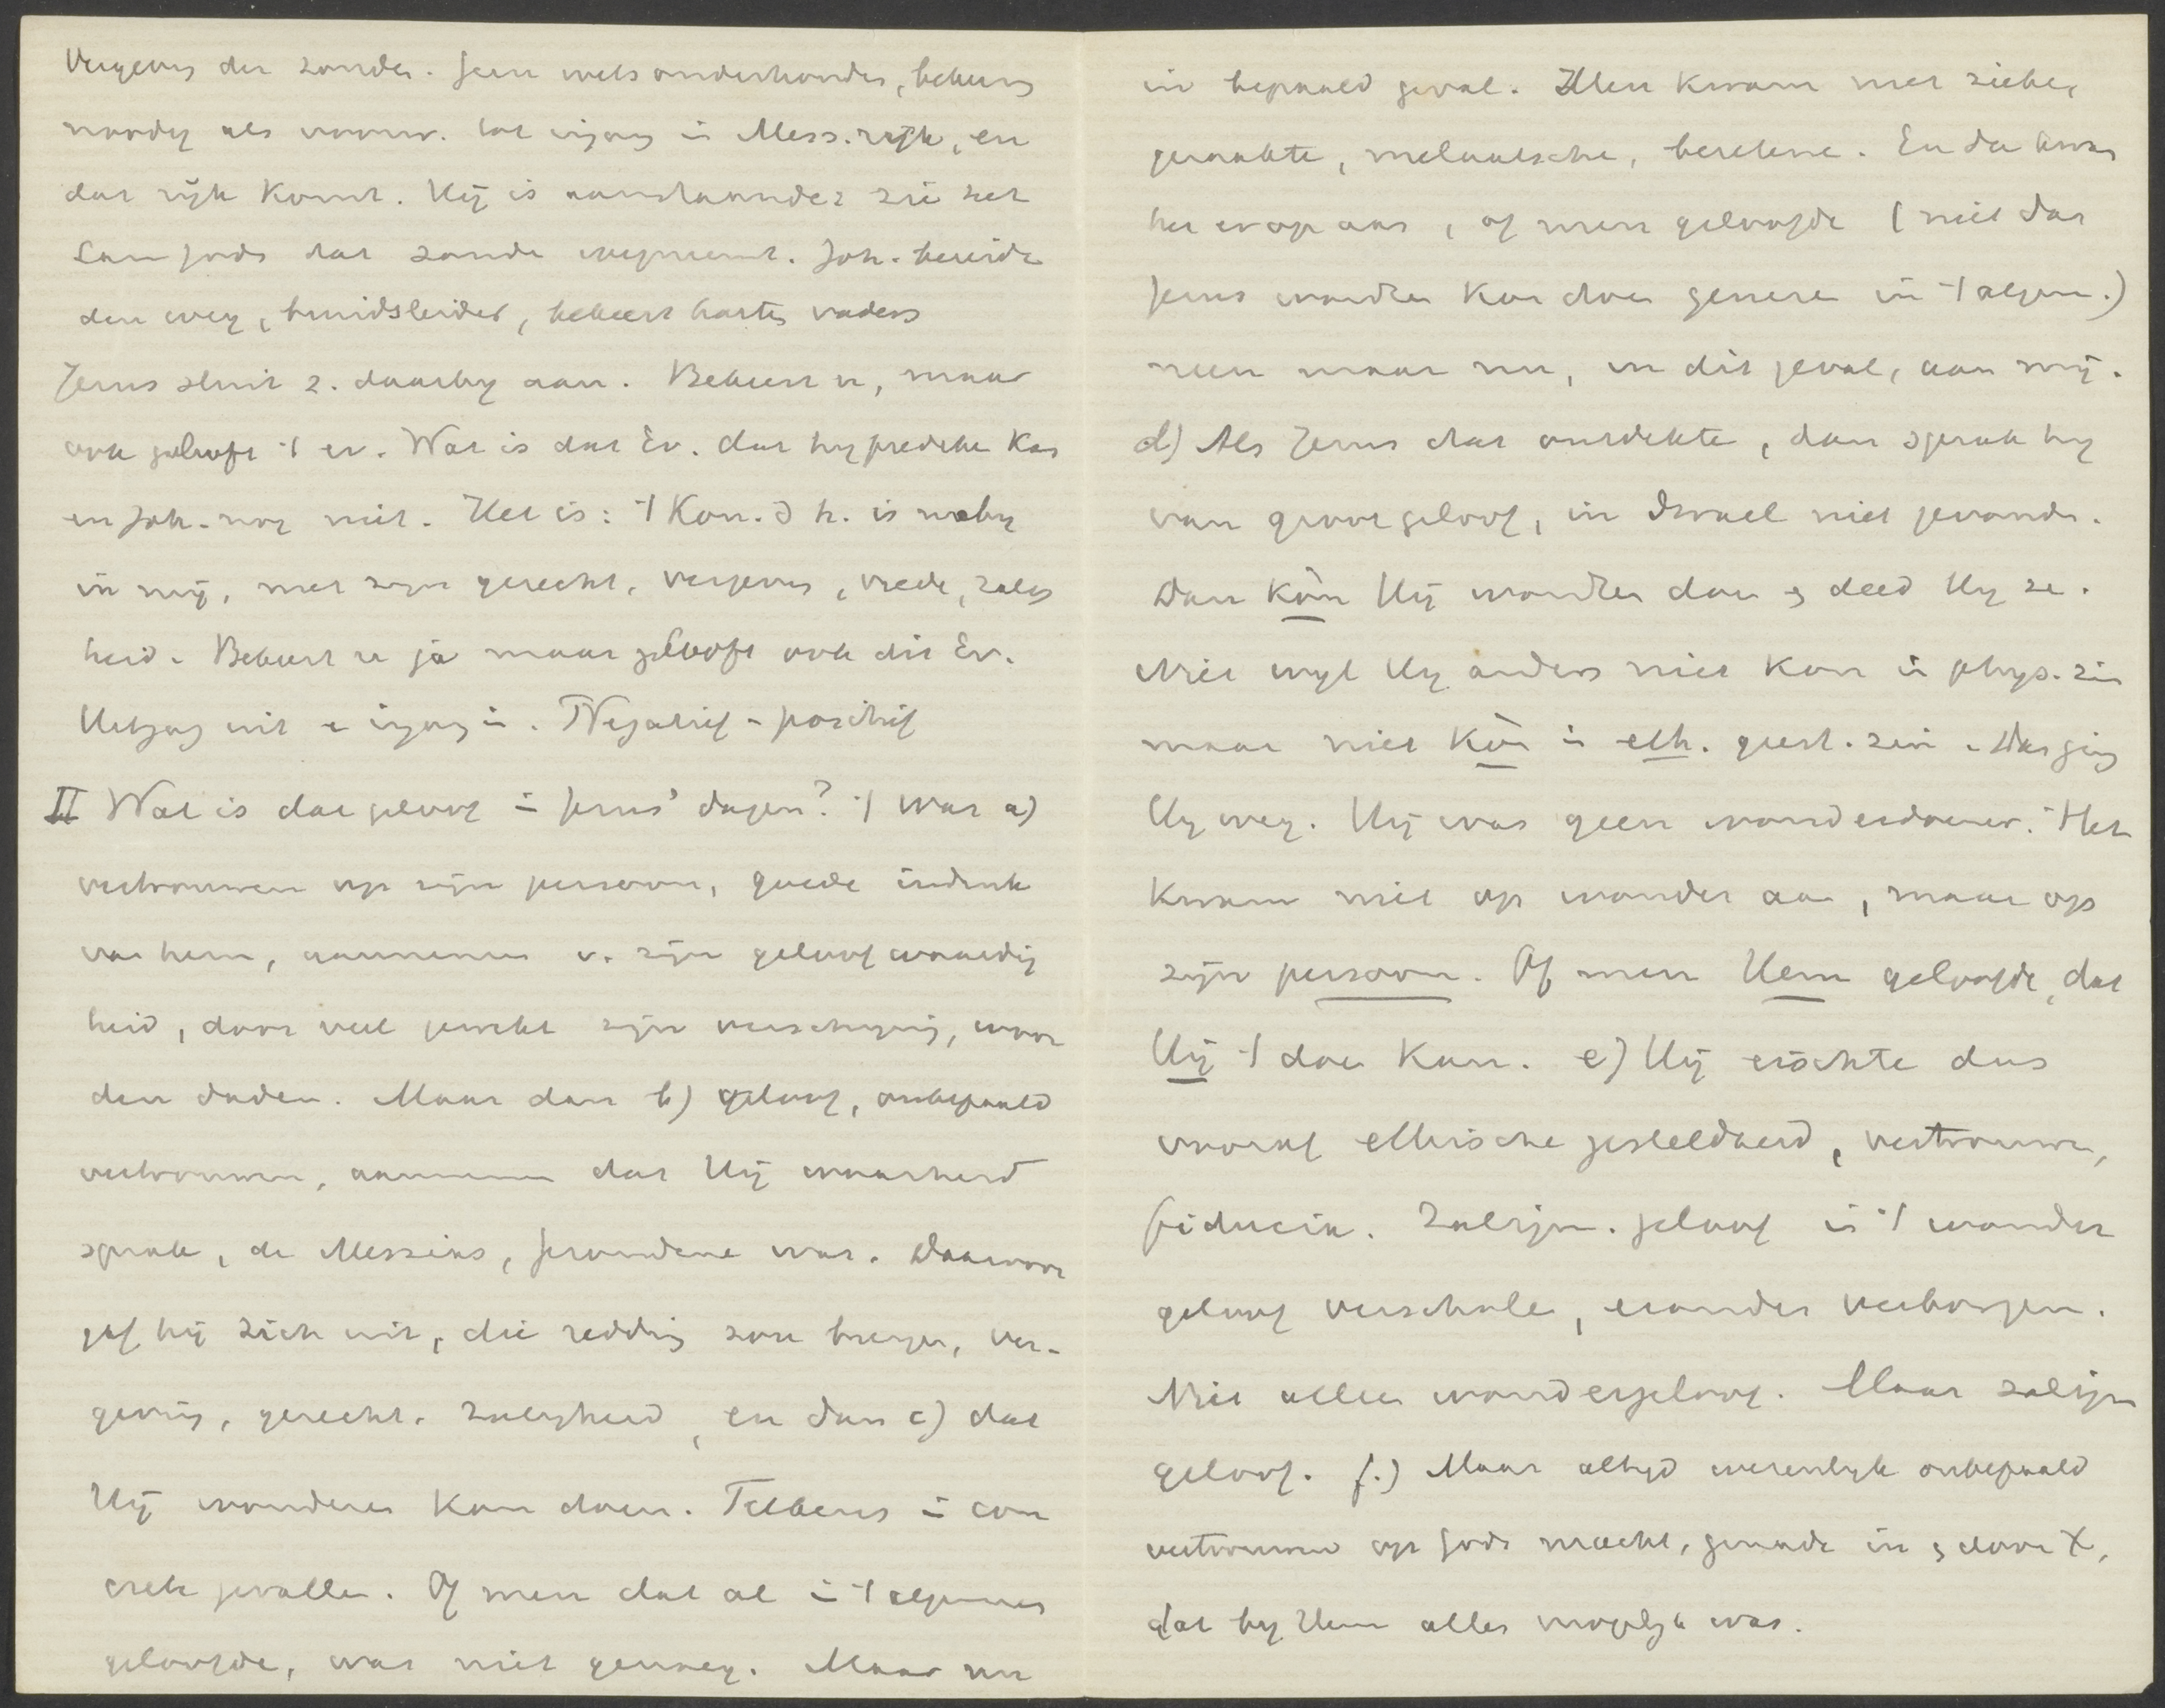 Vergeving der zonden. Geen wetsonderhouder, bekeering
noodig als voorw. tot ingang in Mess. rijk, en
dat rijk komt. Hij is aanstaande: zie het
Lam Gods dat zonde wegneemt. Joh. bereidt
den weg, bruidsleider, bekeert harten vaders
Jezus sluit z. daarbij aan. Bekeert u, maar
ook gelooft 't ev. Wat is dat Ev. dat hij prediken kan
en Joh. nog niet. Het is: 't Kon. d h. is naby
in mij, met zijn gerecht. vergeving, vrede, zalig
heid. Bekeert u ja maar gelooft ook dit Ev.
Uitgang uit en ingang in. Negatief - positief
II Wat is dat geloof in Jezus' dagen? 't was a)
vertrouwen op zijn persoon, goede indruk
van hem, aannemen v. zijn geloofwaardig
heid, door veel gewekt zijn verschijning, woor
den daden. Maar dan b) geloof, onbepaald
vertrouwen, aannemen dat Hij waarheid
sprak, de Messias, Gezondene was. Daarvoor
gaf hij zich uit, die redding zou brengen, ver-
geving, gerecht. zaligheid, en dan c) dat
Hij wonderen kon doen. Telkens in con
crete gevallen. Of men dat al in 't algemeen
geloofde, was niet genoeg. Maar nu
in bepaald geval. Men kwam met zieken,
geraakte, melaatsche, bezetene. En dan kwam
het erop aan, of men geloofde (niet dat
Jezus wonder kon doen genezen in 't algem.)
neen maar nu, in dit geval, aan mij.
d) Als Jezus dat ontdekte, dan sprak hij
van groot geloof, in Israel niet gevonden.
Dan kòn Hij wonder doen en deed Hij ze.
Niet wijl Hij anders niet kon in phys. zin
maar niet kòn in eth. geest. zin. Dan ging
Hij weg. Hij was geen wonderdoener. Het
kwam niet op wonder aan, maar op
zijn persoon. Of men Hem geloofde, dat
Hij 't doen kon. e) Hij eischte dus
vooraf ethische gesteldheid, vertrouwen,
fiducia. Zaligm. geloof is in 't wonder
geloof verscholen, eronder verborgen.
Niet alleen wondergeloof. Maar zaligm
geloof. f.) Maar altijd wezenlijk onbepaald
vertrouwen op Gods macht, genade in en door X,
dat bij Hem alles mogelijk was.